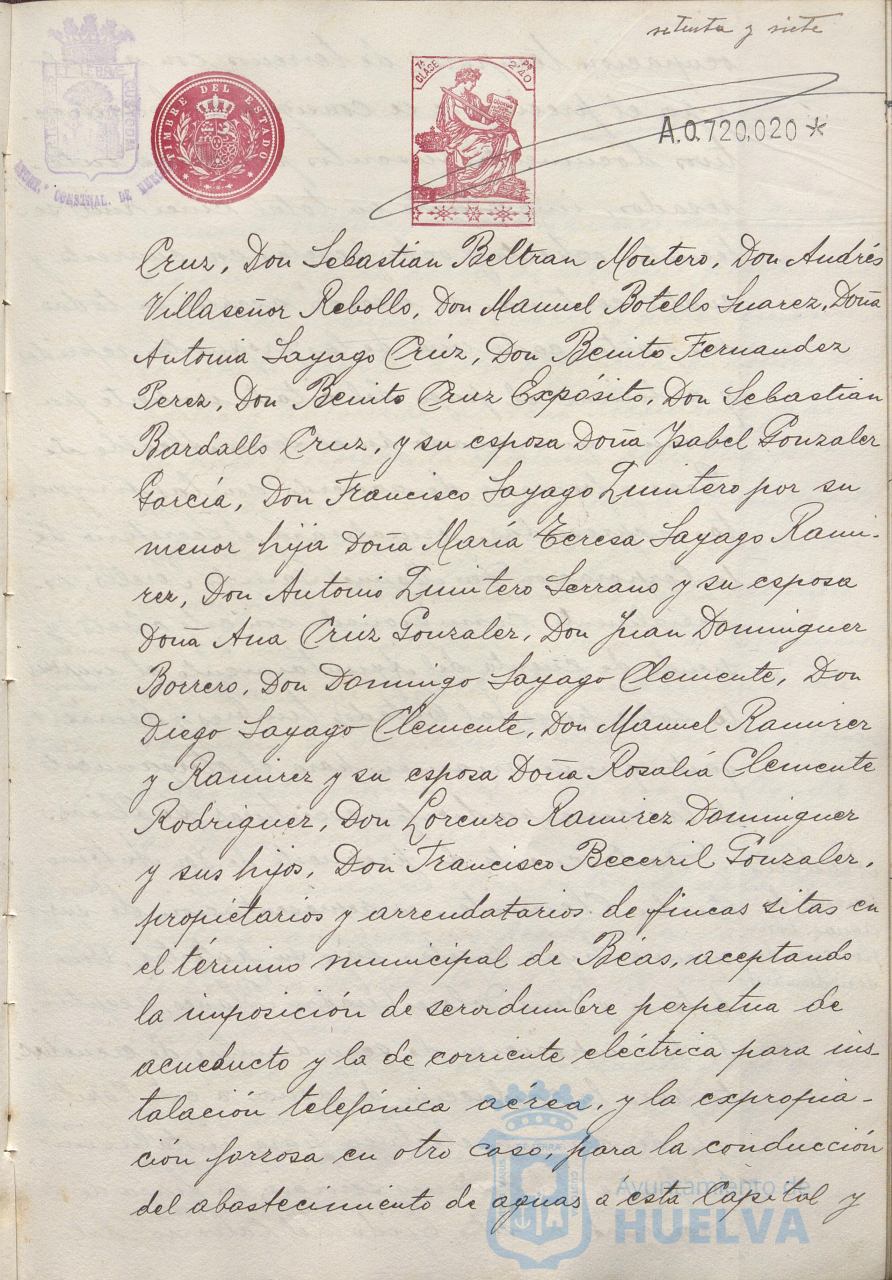 setenta y siete
TIMBRE DEL ESTADO
7ª CLASE 2'40 Ps
A.0.720,020 *
Cruz, Don Sebastián Beltran Montero, Don Andrés
Villaseñor Rebollo, Don Manuel Botello Suarez, Doña
Antonia Sayago Crúz, Don Benito Fernandez
Perez, Don Benito Cruz Expósito, Don Sebastian
Bardallo Cruz, y su esposa Doña Ysabel Gonzalez
García, Don Francisco Sayago Quintero por su
menor hija Doña María Teresa Sayago Rami-
rez, Don Antonio Quintero Serrano y su esposa
Doña Ana Crúz Gonzalez, Don Juan Dominguez
Borrero, Don Domingo Sayago Clemente, Don
Diego Sayago Clemente, Don Manuel Ramirez
y Ramirez y su esposa Doña Rosaliá Clemente
Rodriguez, Don Lorenzo Ramirez Dominguez
y sus hijos, Don Francisco Becerril Gonzalez,
propietarios y arrendatarios de fincas sitas en
el término municipal de Béas, aceptando
la imposición de servidumbre perpetua de
acueducto y la de corriente eléctrica para ins-
talación telefónica aérea, y la expropia-
ción forzosa en otro caso, para la conducción
del abastecimiento de aguas á esta Capital y
Ayuntamiento de
HUELVA